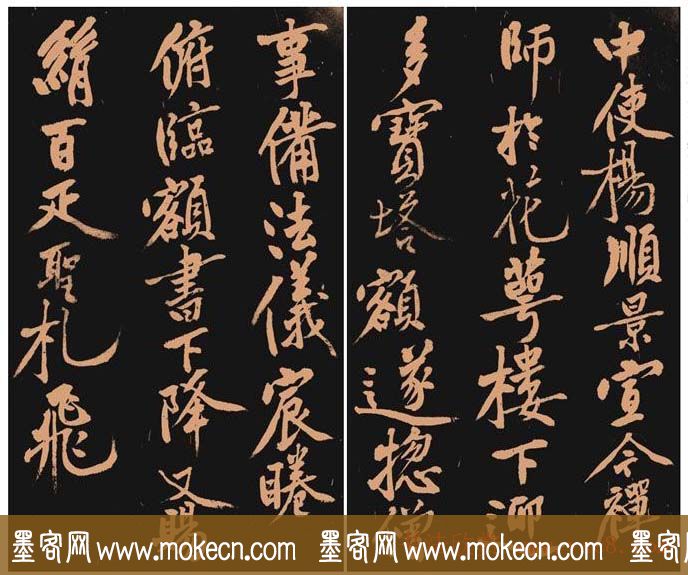 中使楊順景宣令禪
師於花萼樓下迎
多寶塔額遂惣僧
事備法儀宸睠
俯臨額書下降又賜
絹百疋聖札飛
墨客网 www.mokecn.com 墨客网 www.mokecn.com 墨客